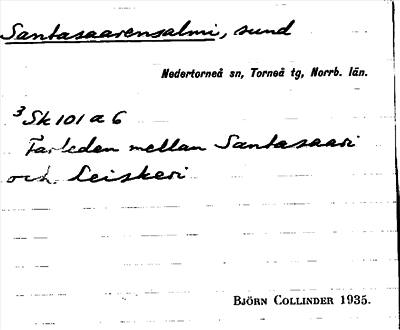 Santasaarensalmi, sund
Nedertorneå sn, Torneå tg, Norrb. län.
3 Sk 101 a 6
Farleden mellan Santasaari
och Leiskeri
BJÖRN COLLINDER 1935.